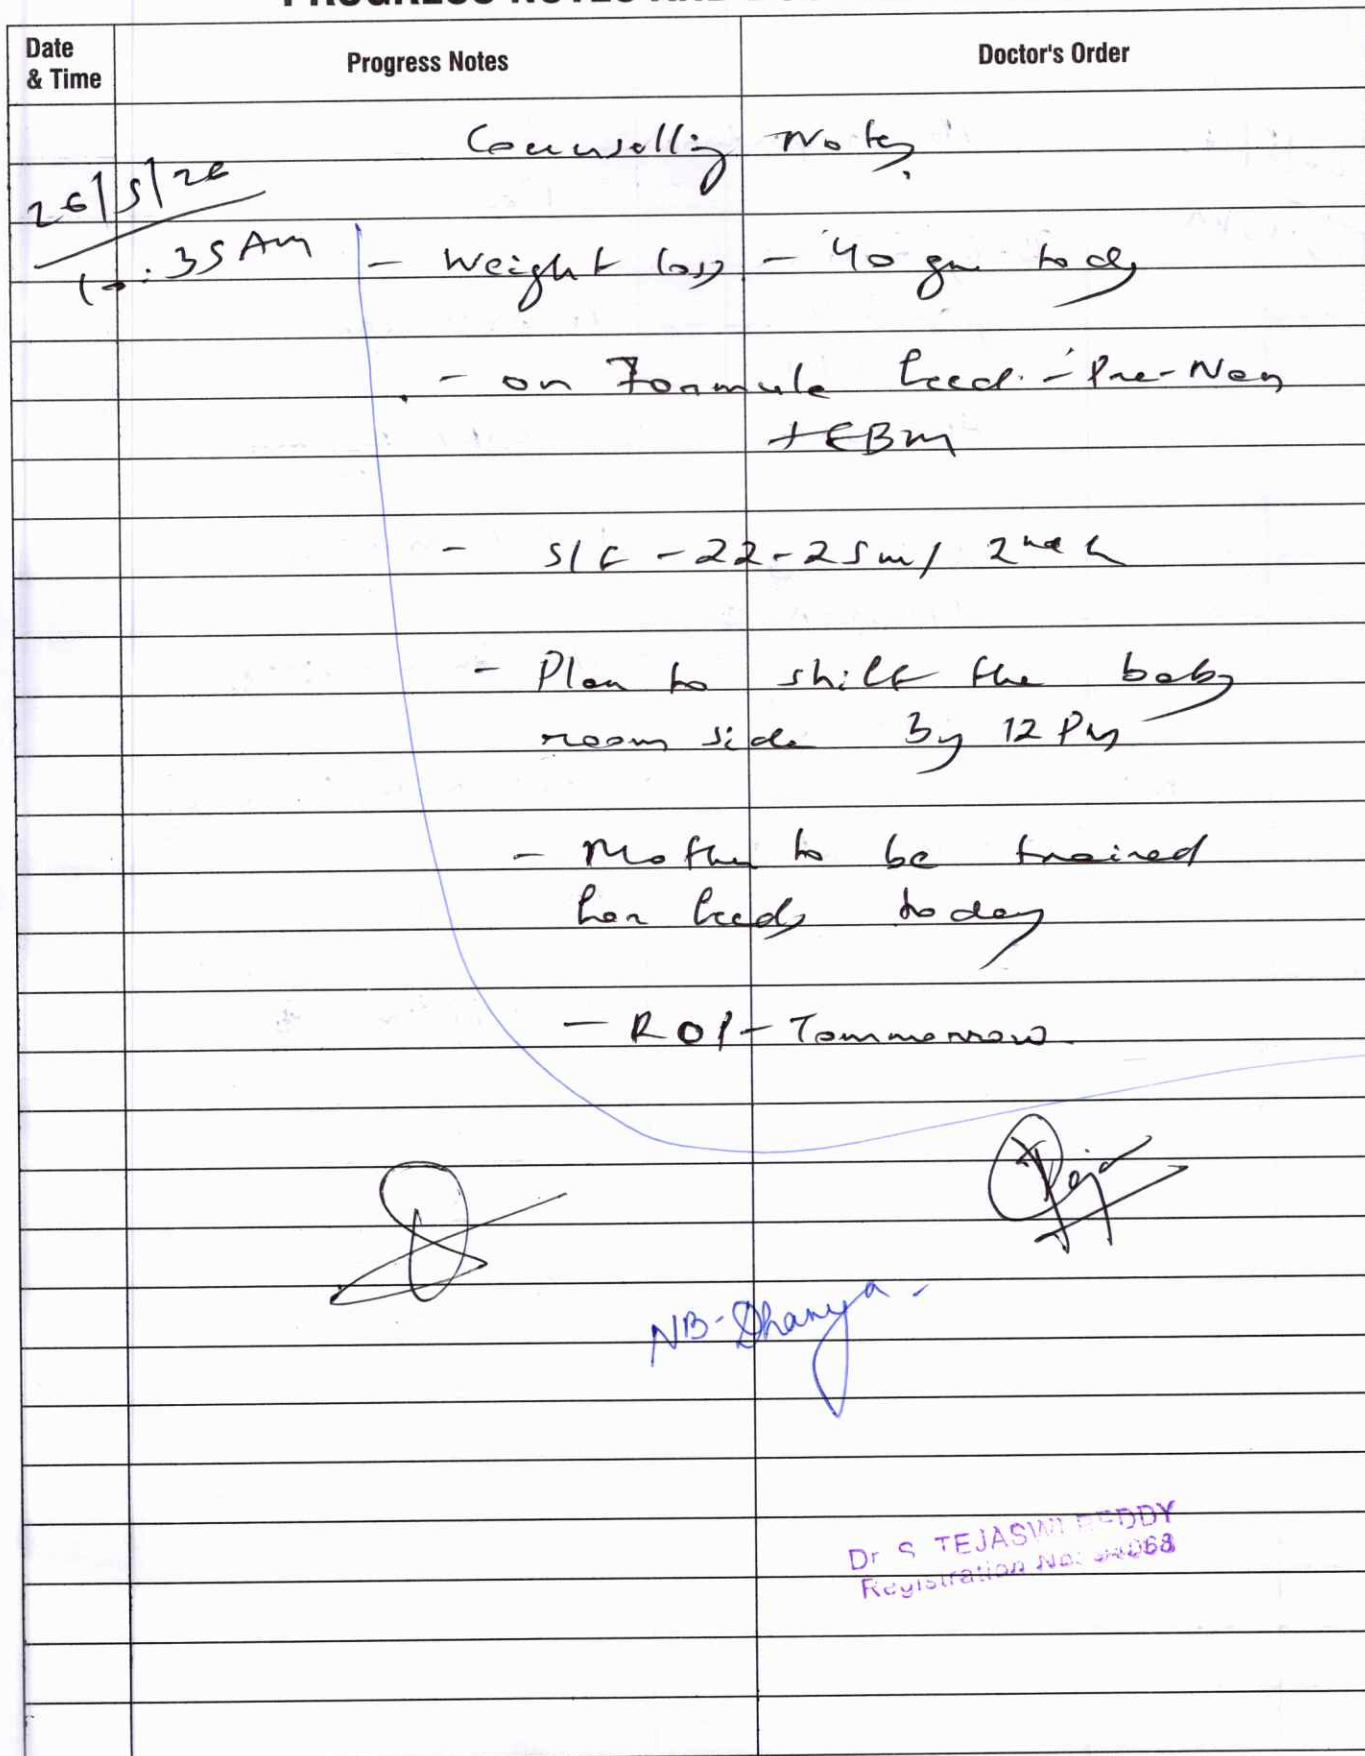 Date
& Time
Progress Notes
Doctor's Order
Counselling Notes
26/5/26
10:35 Am
- Weight loss - 40 gm today
- on Formula feed - Pre-Nan
+ EBM
- S/F - 22-25ml 2nd h
- Plan to shift the baby
room side By 12 Pm
- Mother to be trained
for feeds today
- ROP - Tommorrow
NB-Dhanya
Dr S TEJASWI REDDY
Registration No: